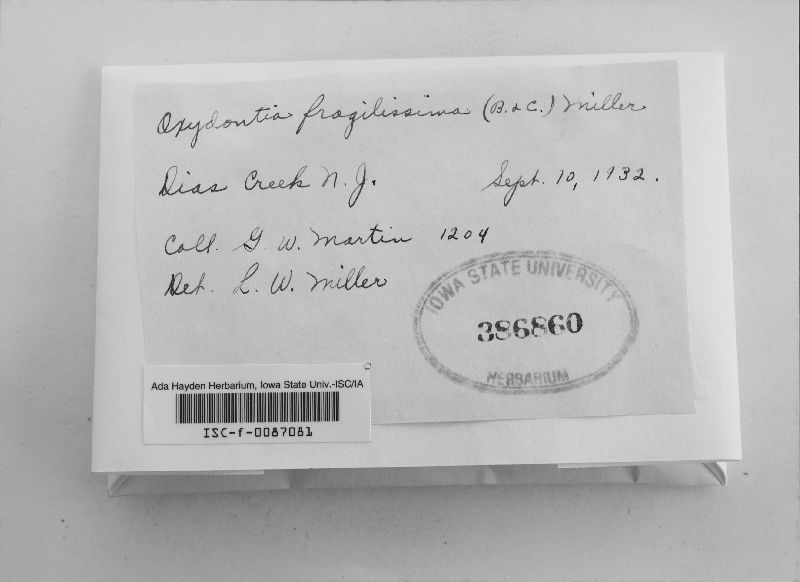 Oxydontia fragilissima (B. & C.) Miller
Dias Creek N. J. Sept. 10, 1932.
Coll. G. W. Martin 1204
Det. L. W. Miller
IOWA STATE UNIVERSITY
386860
HERBARIUM
Ada Hayden Herbarium, Iowa State Univ.-ISC/IA
ISC-f-0087081